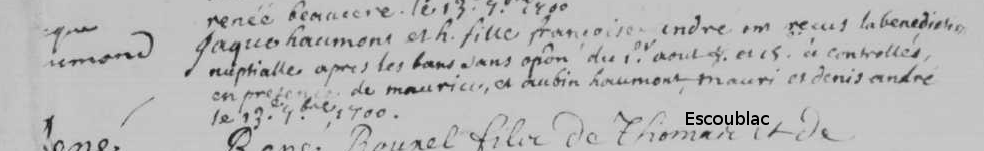 renée beaucere. le 13. 7.bre 1700
que
Jaque haumont et h. fille françoise andre ont reçus la benediction
umond
nuptialle apres les bans sans opôn du 1.er aout 8. et 15. d controllés,
en presence de maurice, et aubin haumont, mauri et denis andré
le 13.e 7.bre, 1700.
Escoublac
René.
René Rouxel filie de Thomas et de